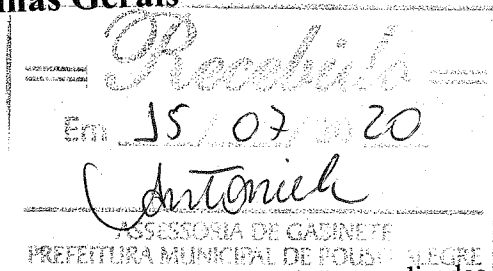 nas Gerais
Recebido
Em 15 / 07 / 20 20
ASSESSORIA DE GABINETE
PREFEITURA MUNICIPAL DE POUSO ALEGRE